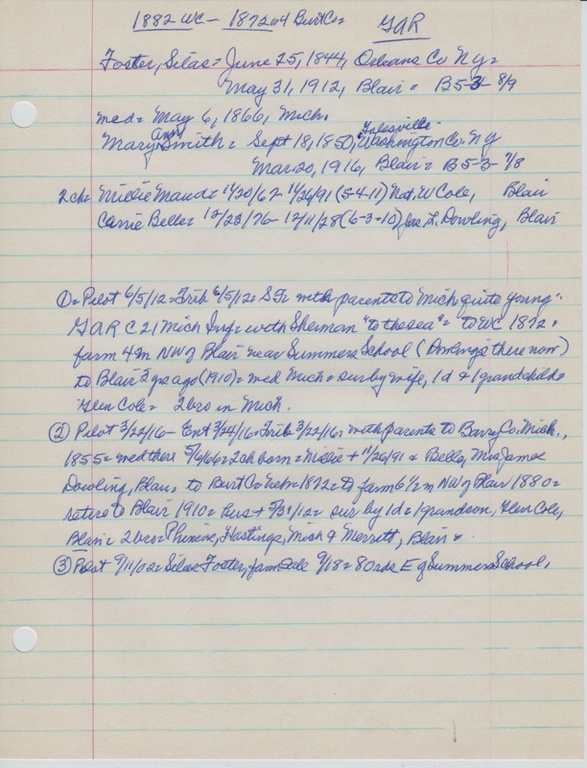 1882 WC - 1872 04 Burt Co= GAR
Foster, Silas = June 25, 1844, Orleans Co NY=
May 31, 1912, Blair = B 5-3- 8/9
med= May 6, 1866, Mich.
Mary Ann Smith = Sept 18, 1850, Galesville Washington Co. NY
Mar 20, 1916, Blair = B 5-3- 7/8
2 ch= Millie Maud= 11/20/67- 11/26/91 (5-4-11) Nat. W Cole, Blair
Carrie Belle= 12/23/76- 12/11/28 (6-3-10) Jas. L. Dowling, Blair
① = Pilot 6/5/12 = Trib 6/5/12 = SF = with parents to Mich quite young=
GAR C 21 Mich Inf = with Sherman "to the sea" = to WC 1872=
farm 4 m NW of Blair near Summers School (Dowlings there now)
to Blair 2 yrs ago (1910) = med Mich = sur by wife, 1 d & 1 grandchild=
Glen Cole = 2 bro in Mich.
② Pilot 3/22/16 - Ent 3/24/16 = Trib 3/22/16 = with parents to Barry Co. Mich.,
1855 = med there 5/6/66 = 2 ch born = Millie + 11/26/91 & Belle, Mrs James
Dowling, Blair, to Burt Co Neb = 1872 = to farm 6 1/2 m NW of Blair 1880 =
retire to Blair 1910 = hus + 5/31/12 = sur by 1 d = 1 grandson, Glen Cole,
Blair = 2 bro = Hastings, Mich & Merritt, Blair =
③ Pilot 9/11/02 = Silas Foster, farm sale 9/18 = 80 rds E of Summers School.